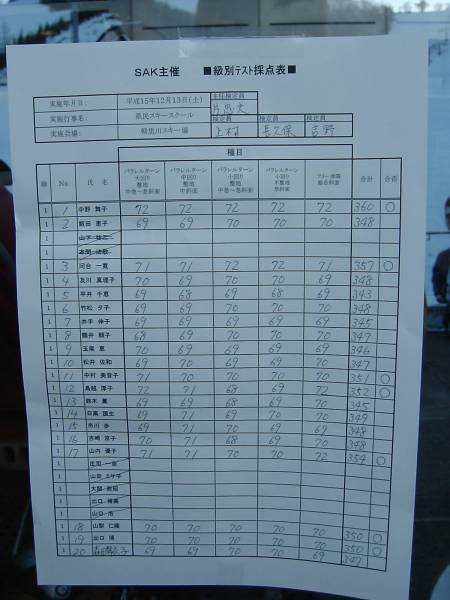 SAK主催 ■級別テスト採点表■
実施年月日: 平成15年12月13日(土) 主任検定員
実施行事名: 県民スキースクール 検定員 検定員 検定員
実施会場: スキー場 上村 長久保 吉野
種目
級 No. 氏 名 パラレルターン 大回り 整地 中急~急斜面 パラレルターン 中回り 整地 中斜面 パラレルターン 小回り 整地 中急~急斜面 パラレルターン 小回り 不整地 急斜面 フリー滑降 総合斜面 合計 合否
1 1 中野 舞子 72 72 72 72 72 360 ○
1 2 飯田 恵子 69 69 70 70 70 348
1 山下
1
1 3 河合 一寛 71 71 72 72 71 357 ○
1 4 及川 真理子 70 69 70 70 69 348
1 5 平井 千恵 69 68 69 68 69 343
1 6 竹松 夕子 69 69 70 70 70 348
1 7 赤手 伸子 69 69 69 69 69 345
1 8 鶴井 順子 68 69 70 70 70 347
1 9 玉尾 恵 70 69 69 69 69 346
1 10 松井 佐和 69 70 69 69 70 347
1 11 中村 美音子 71 70 70 70 70 351 ○
1 12 鳥越 厚子 72 71 68 69 72 352 ○
1 13 鈴木 薫 69 69 68 69 70 345
1 14 日高 国生 69 71 69 70 70 349
1 15 市川 歩 69 71 70 69 69 348
1 16 宮崎 京子 70 71 68 69 70 348
1 17 山内 優子 71 71 70 70 72 354 ○
1 庄田 一郎
1 山田 ミサ子
1 大関
1 出口
1 山口 浩
1 18 山梨 仁織 70 70 70 70 70 350 ○
1 19 出口 博 70 70 70 70 70 350 ○
1 20 69 69 70 70 69 347